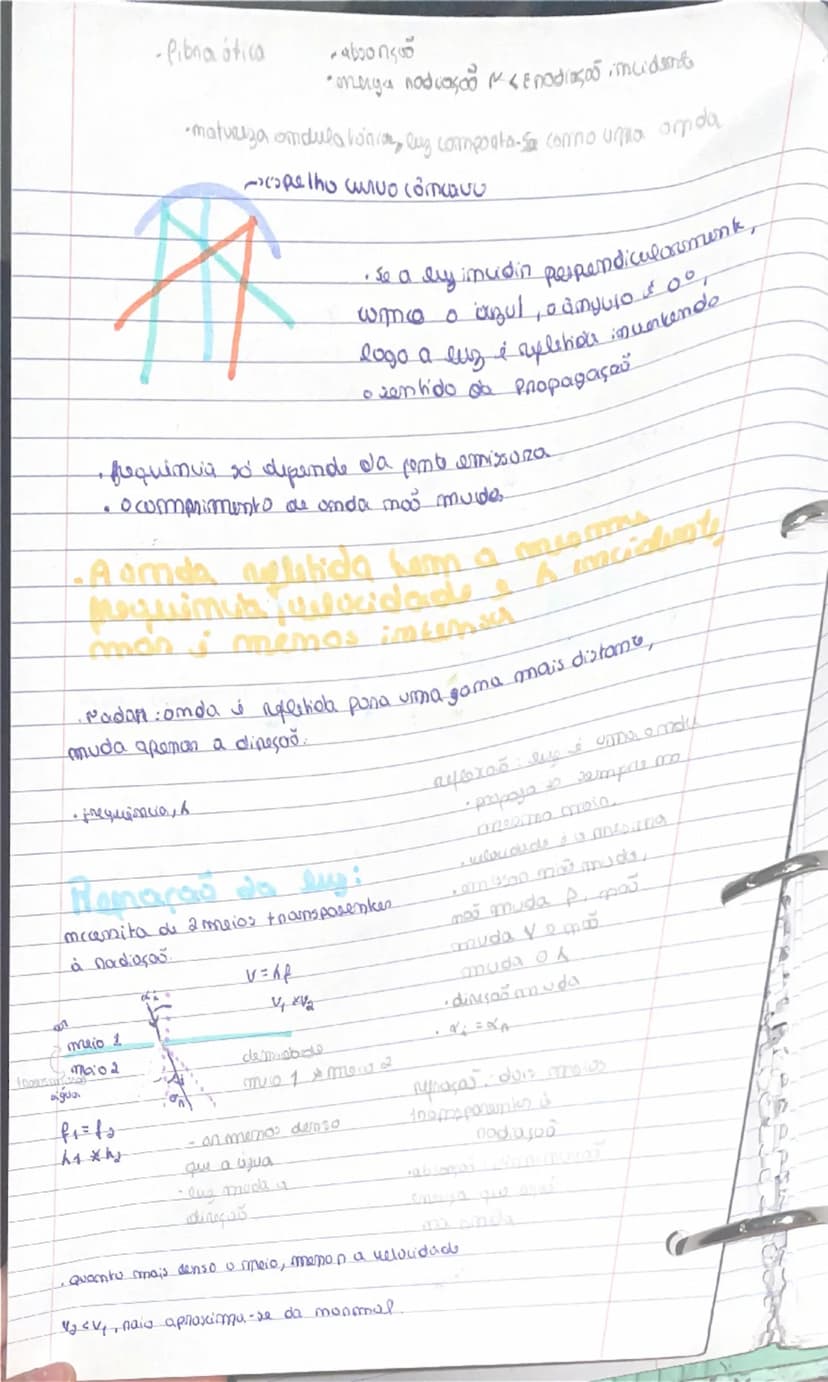 - fibra ótica
• absorção
• energia radiação r < E radiação incidente
• natureza ondulatória, luz comporta-se como uma onda
→ espelho curvo côncavo
• se a luz incidir perpendicularmente,
como o azul, o ângulo é 0°,
logo a luz é refletida invertendo
o sentido da propagação
• frequência só depende da fonte emissora
• o comprimento de onda não muda
• A onda refletida tem a mesma
frequência, velocidade e λ incidente,
mas é menos intensa
• Radar: onda é refletida para uma gama mais distante,
muda apenas a direção.
• frequência, λ
reflexão: luz é uma onda
• propaga-se sempre no
mesmo meio.
• velocidade é a mesma
• emissor não muda,
não muda f, não
muda v e não
muda o λ
• direção muda
• αi = αr
Refração da luz:
necessita de 2 meios transparentes
à radiação.
v = λf
v₁ ≠ v₂
αi
ar
meio 1
meio 2
água
αr
f₁ = f₂
λ₁ ≠ λ₂
densidade
meio 1 ≠ meio 2
- ar menos denso
que a água
- luz muda a
direção
refração: dois meios
transparentes à
radiação
energia que
na onda
• quanto mais denso o meio, menor a velocidade
v₂ < v₁, raio aproxima-se da normal.